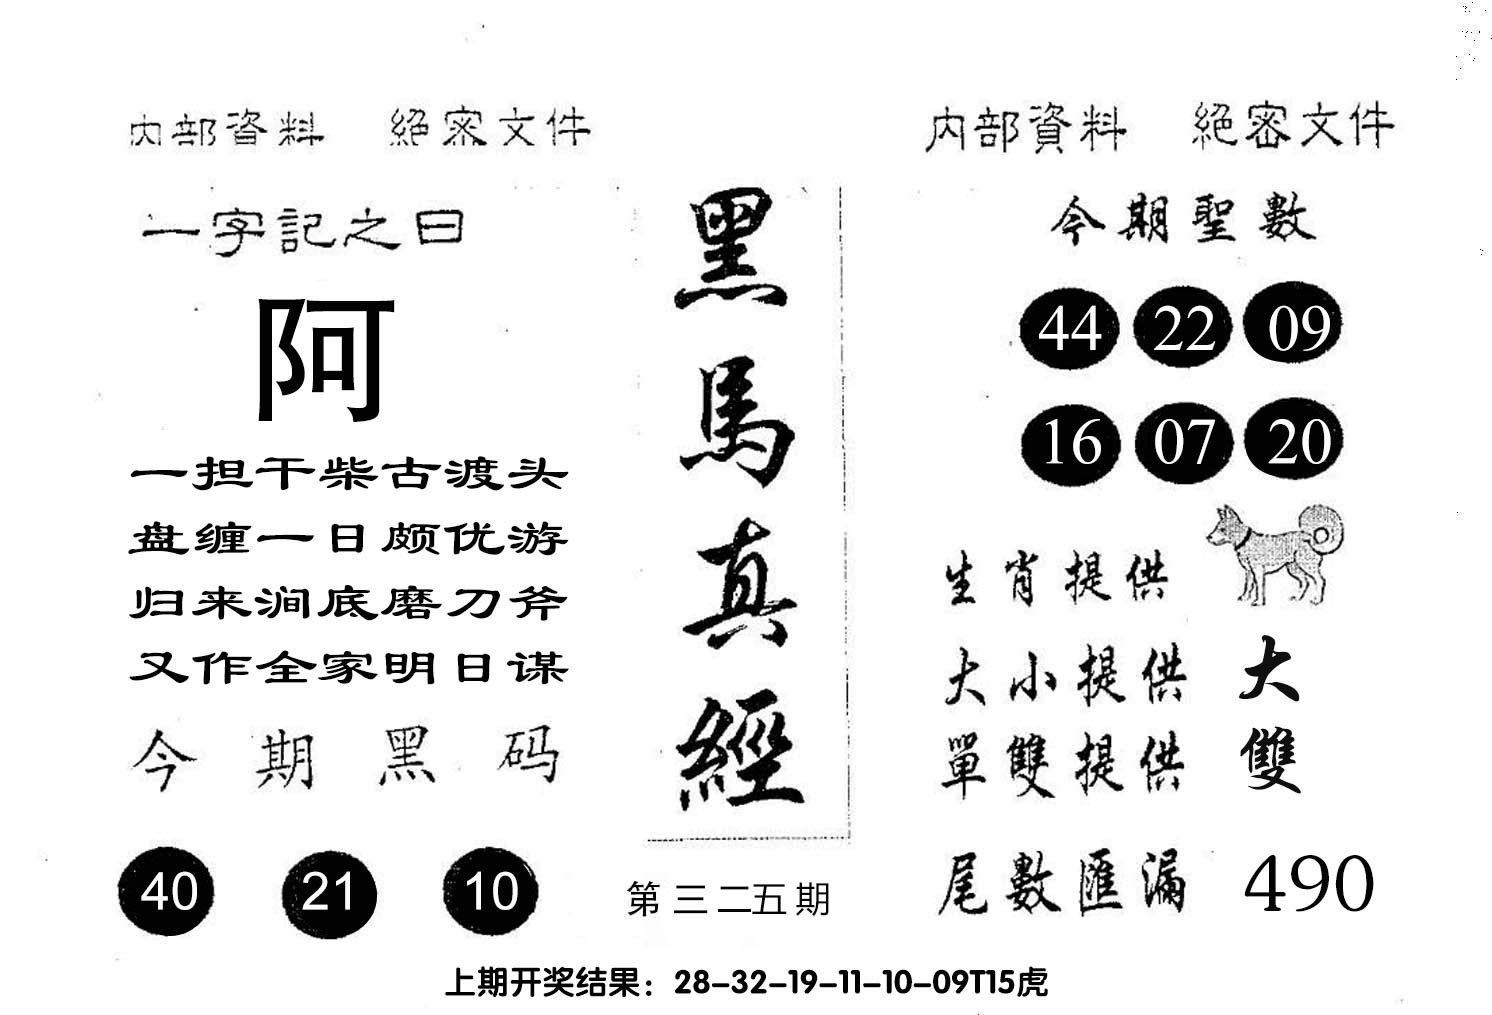 内部資料 絕密文件
一字記之曰
阿
一担干柴古渡头
盘缠一日颇优游
归来涧底磨刀斧
又作全家明日谋
今期黑码
40 21 10
黑馬真經
第三二五期
内部資料 絕密文件
今期聖數
44 22 09
16 07 20
生肖提供
大小提供 大
單雙提供 雙
尾數匯漏 490
上期开奖结果：28-32-19-11-10-09T15虎